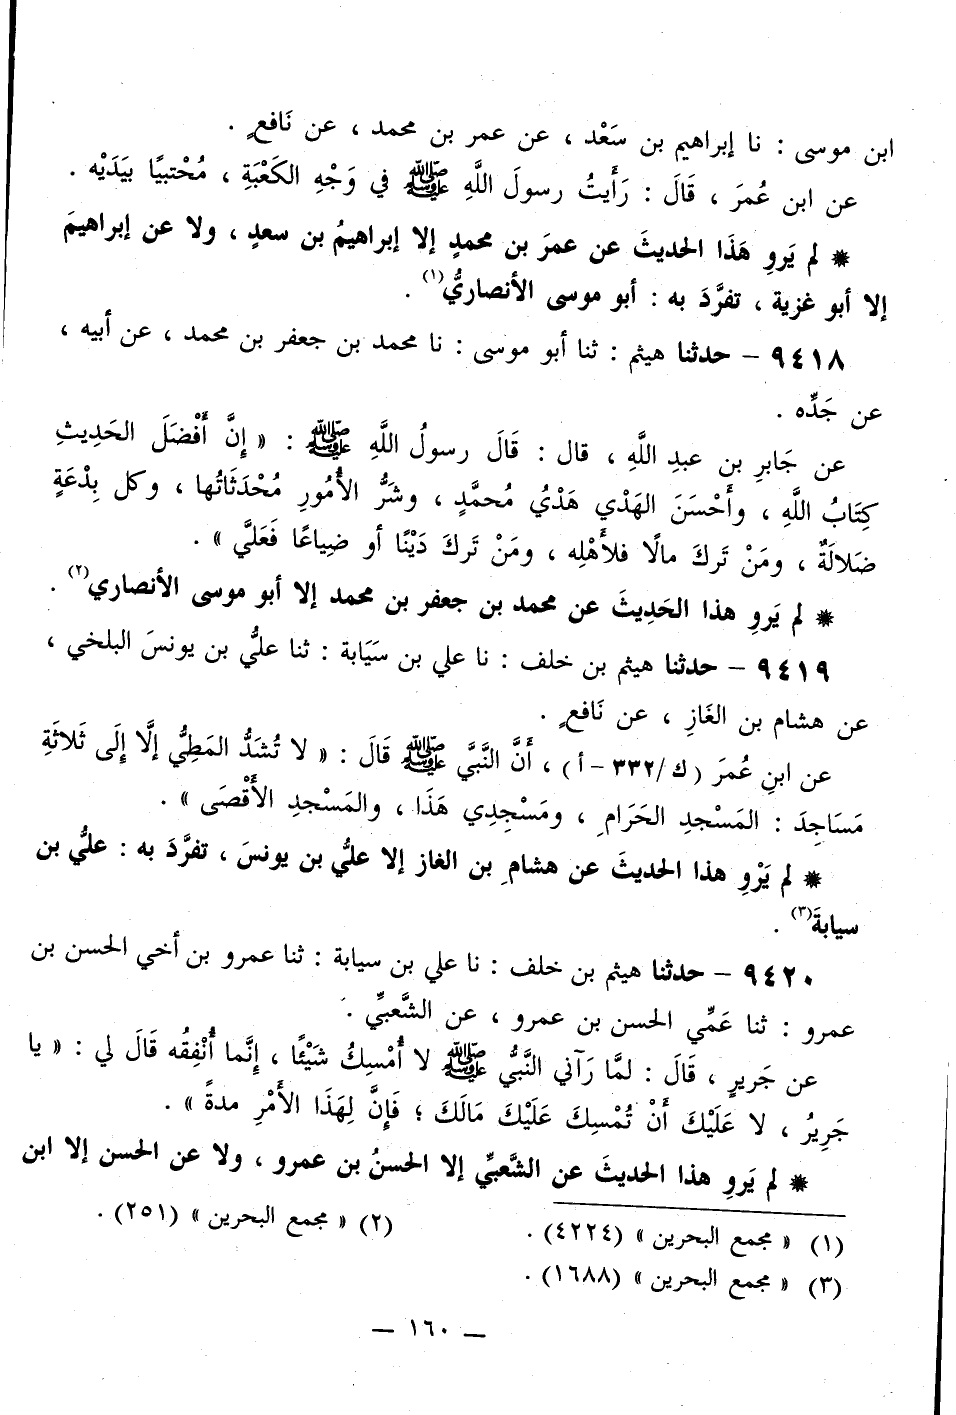 ابن موسى : نا إبراهيم بن سَعْد ، عن عمر بن محمد ، عن نَافعٍ .
عن ابن عُمرَ ، قَالَ : رَأَيتُ رسولَ اللَّهِ ﷺ في وَجْهِ الكَعْبَةِ ، مُحْتبيًا بيَدَيْه .
* لم يَروِ هَذَا الحديثَ عن عمرَ بن محمدٍ إلا إبراهيمُ بن سعدٍ ، ولا عن إبراهيمَ
إلا أبو غزية ، تفرَّدَ به : أبو موسى الأنصاريُّ(١) .
٩٤١٨ – حدثنا هيثم : ثنا أبو موسى : نا محمد بن جعفر بن محمد ، عن أبيه ،
عن جَدِّه .
عن جَابرِ بن عبدِ اللَّهِ ، قال : قَالَ رسولُ اللَّهِ ﷺ : « إنَّ أَفْضَلَ الحَدِيثِ
كِتَابُ اللَّهِ ، وأَحْسَنَ الهَدْي هَدْيُ مُحمَّدٍ ، وشَرُّ الأُمُورِ مُحْدَثَاتُها ، وكل بِدْعَةٍ
ضَلالَةٌ ، ومَنْ تَركَ مالًا فلأَهْلِه ، ومَنْ تَركَ دَيْنًا أو ضِياعًا فَعَليَّ » .
* لم يَروِ هذا الحَدِيثَ عن محمد بن جعفر بن محمد إلا أبو موسى الأنصاري(٢) .
٩٤١٩ – حدثنا هيثم بن خلف : نا علي بن سَيَابة : ثنا عليُّ بن يونسَ البلخي ،
عن هشام بن الغَازِ ، عن نَافعٍ .
عن ابنِ عُمرَ (ك/٣٣٢ – أ) ، أَنَّ النَّبيَّ ﷺ قَالَ : « لا تُشَدُّ المَطِيُّ إلَّا إِلَى ثَلاثَةِ
مَسَاجِدَ : المَسْجدِ الحَرَامِ ، ومَسْجِدِي هَذَا ، والمَسْجدِ الأَقْصَى » .
* لم يَرْوِ هذا الحديثَ عن هشامِ بن الغاز إلا عليُّ بن يونسَ ، تفرَّدَ به : عليُّ بن
سيابةَ(٣) .
٩٤٢٠ – حدثنا هيثم بن خلف : نا علي بن سيابة : ثنا عمرو بن أخي الحسن بن
عمرو : ثنا عَمِّي الحسن بن عمرو ، عن الشَّعبيِّ .
عن جَريرٍ ، قَالَ : لمَّا رَآني النَّبيُّ ﷺ لا أُمْسِكُ شَيْئًا ، إنَّما أُنْفِقُه قَالَ لي : « يا
جَرِيرُ ، لا عَلَيْكَ أَنْ تُمْسِكَ عَلَيْكَ مَالَكَ ؛ فَإنَّ لِهَذَا الأَمْرِ مدةً » .
* لم يَروِ هذا الحديثَ عن الشَّعبيِّ إلا الحسنُ بن عمرو ، ولا عن الحسن إلا ابن
(١) « مجمع البحرين » (٤٢٢٤) . (٢) « مجمع البحرين » (٢٥١) .
(٣) « مجمع البحرين » (١٦٨٨) .
— ١٦٠ —